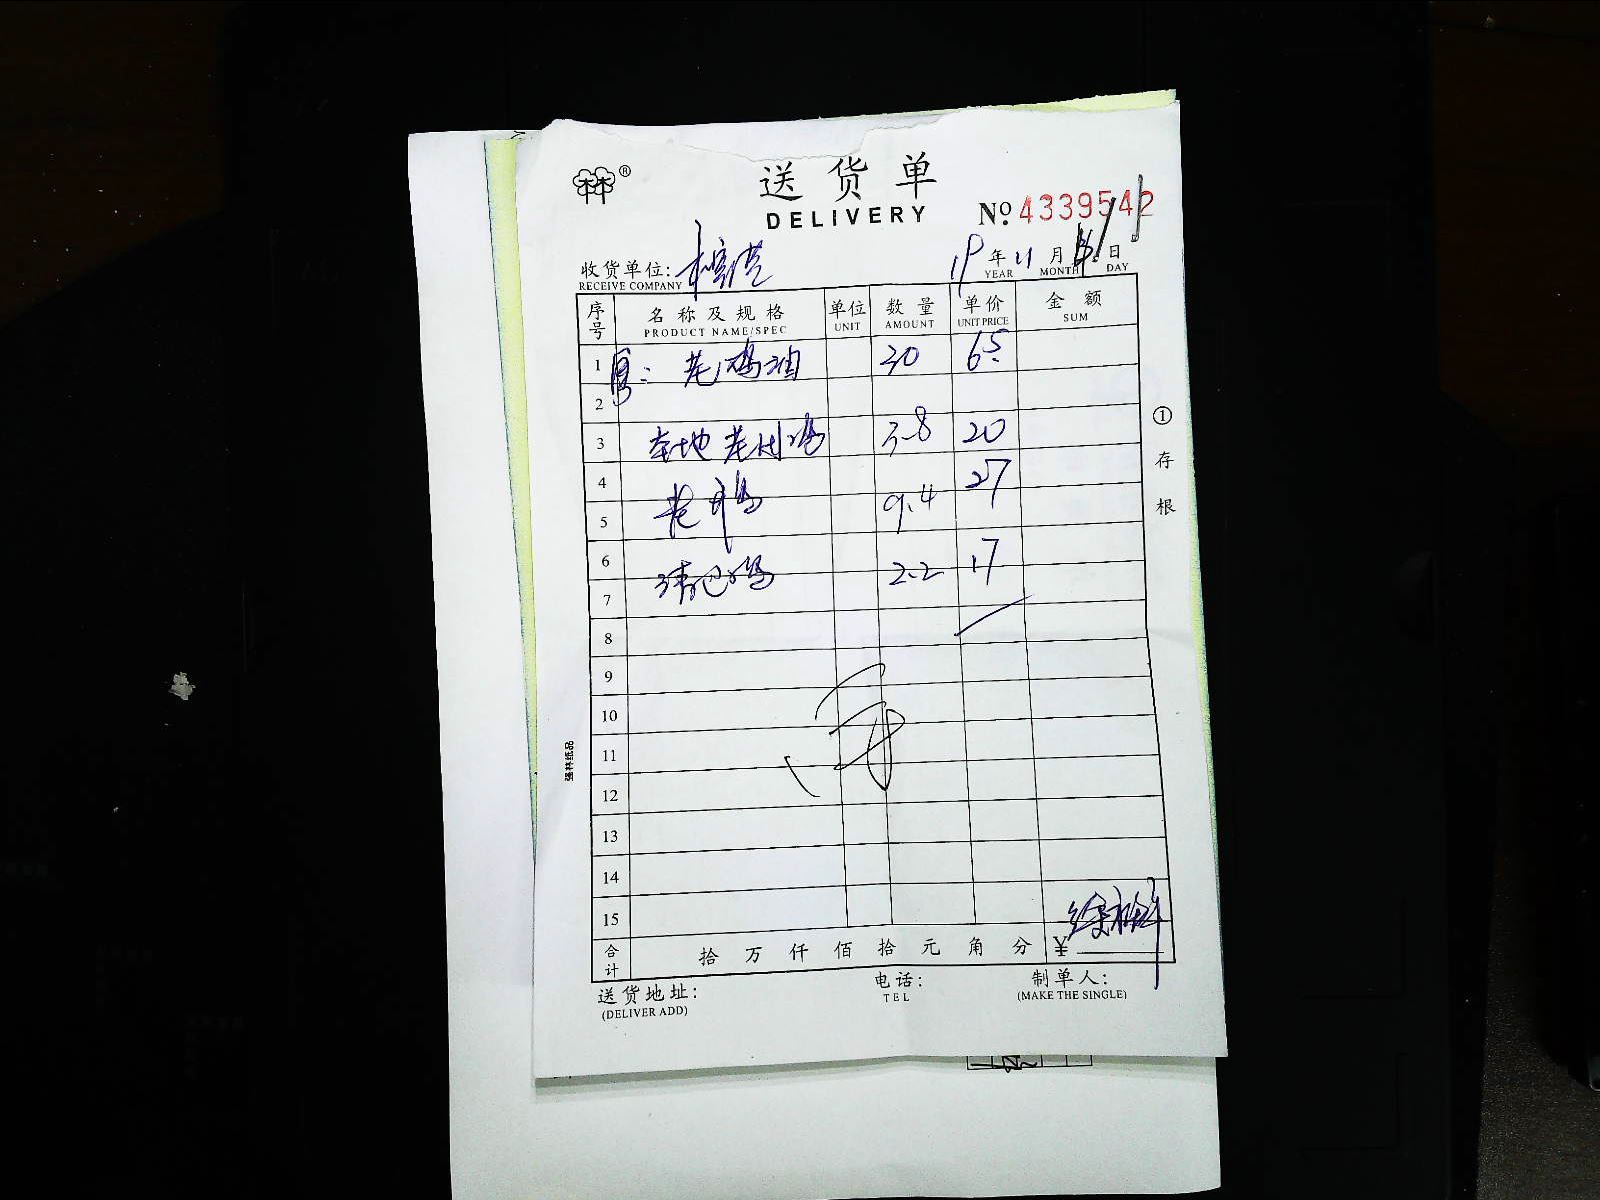 送货单
DELIVERY
№ 4339542
收货单位:
RECEIVE COMPANY
19 年 11 月 日
YEAR MONTH DAY
序号 名称及规格 单位 数量 单价 金额
PRODUCT NAME/SPEC UNIT AMOUNT UNIT PRICE SUM
1 老鸡油 30 65
2
3 本地老母鸡 3.8 20
4 27
5 老鸡 9.4
6 17
7 清远鸡 2.2
8
9
10
11
12
13
14
15
合计 拾 万 仟 佰 拾 元 角 分 ¥
送货地址: 电话: 制单人:
(DELIVER ADD) TEL (MAKE THE SINGLE)
①存根
强林纸品